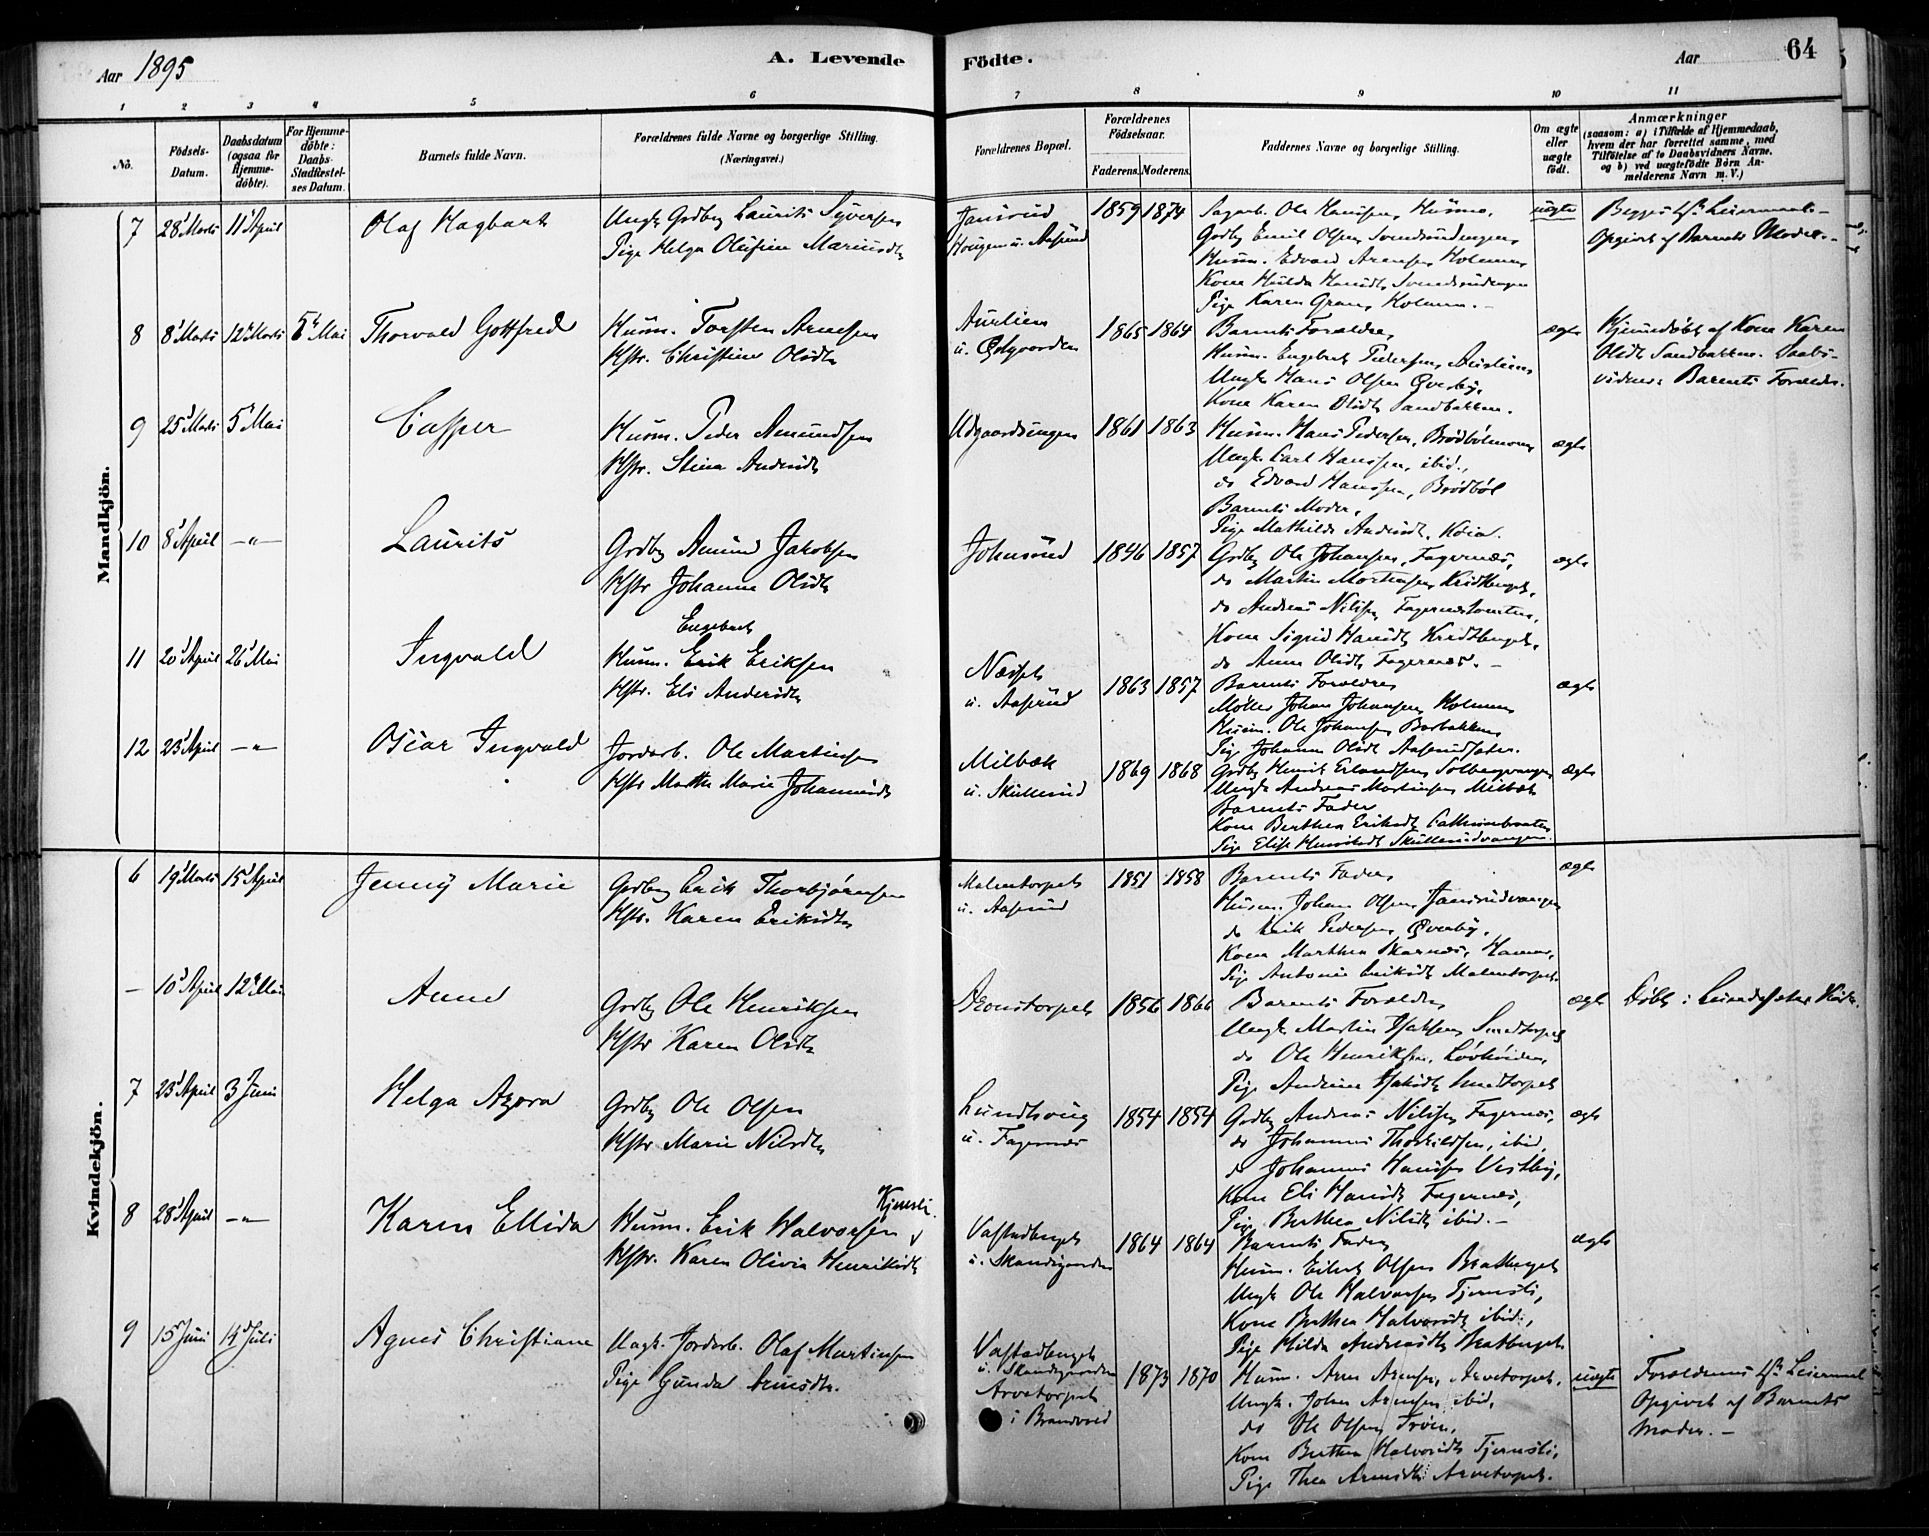 Aar 1895
A. Levende
Födte.
Aar
64
1 2 3 4 5 6 7 8 9 10 11
No.
Födsels-Datum.
Daabsdatum (ogsaa for Hjemmedöbte).
For Hjemmedöbte: Daabs-Stadfæstelses Datum.
Barnets fulde Navn.
Forældrenes fulde Navne og borgerlige Stilling. (Næringsvei.)
Forældrenes Bopæl.
Forældrenes Födselsaar.
Faderens. Moderens.
Faddernes Navne og borgerlige Stilling.
Om ægte eller uægte födt.
Anmærkninger
(saasom: a) i Tilfælde af Hjemmedaab, hvem der har forrettet samme, med Tilföielse af to Daabsvidners Navne, og b) ved uægtefödte Börn Anmelderens Navn m. V.)
Mandkjön.
7 28 Marts 11 April Olaf Hagbart
Ungk. Grdbg Laurits Syversen
Pige Helga Olufine Mariusdt
Jansrud
Haugen u. Aasrud
1859 1874
Sagarb. Ole Hanssen, Husmo,
Grdbg Emil Olsen Svendsrudengen
Husm. Edvard Arensen Holmen
Kone Hulda Hansdt, Svendsrudengen
Pige Karen Gran, Holmen. -
uægte
Begges 1ste Leiermaal. -
Opgivet af Barnets Moder. -
8 8 Marts 12 Marts 5 Mai Thorvald Gottfred
Husm. Torsten Arnesen
Hstr. Christine Olsdt
u. Østgaarden
1865 1864
Barnets Forældre,
Husm. Engebret Pedersen,
Ungk Hans Olsen Øverby,
Kone Karen Olsdt Sandbakken.
ægte
Hjemmedöbt af Kone Karen
Olsdt Sandbakken. Daabs-
vidner: Barnets Forældre.
9 25 Marts 5 Mai Casper
Husm. Peder Amundsen
Hstr. Stina Andersdt
Udgaardsengen
1861 1863
Husm. Hans Pedersen, Brødbølmoen
Ungk. Carl Hanssen, ibid.,
do Edvard Hanssen, Brødbøl
Barnets Moder,
Pige Mathilde Andersdt, Koia.
ægte
10 8 April -"- Laurits
Grdbg Amund Jakobsen
Hstr Johanne Olsdt
Johnsrud
1846 1857
Grdbg Ole Johansen, Fagernæs,
do Martin Mortensen Kridtberget,
do Andreas Nilssen Fagernestomten,
Kone Sigrid Hansdt Kridtberget,
do Anne Olsdt Fagernæs. -
ægte
11 20 April 26 Mai Ingvald
Engebret
Husm. Erik Eriksen
Hstr. Eli Andersdt
Næsset
u. Aasrud
1863 1857
Barnets Forældre,
Møller Johan Johansen Holmen
Husm. Ole Johansen Berbakken
Pige Johanne Olsdt Aasrudsæter.
ægte
12 23 April -"- Oscar Ingvald
Jordarb. Ole Martinsen
Hstr Marthe Marie Johannesdt
Milbæk
u. Skullerud
1869 1868
Grdbg Henrik Erlandsen Solbergvangen
Ungk Andreas Martinsen Milbæk
Barnets Fader
Kone Berthea Eriksdt Cathrinebraaten
Pige Elise Henriksdt Skullerudvangen.
ægte
Kvindekjön.
6 19 Marts 15 April Jenny Marie
Grdbg Erik Thorbjørnsen
Hstr. Karen Eriksdt
Malmtorpet
u. Aasrud
1851 1858
Barnets Fader,
Husm. Johan Olsen, Jansrudvangen
do Erik Pedersen Øverby,
Kone Marthea Skarnæs, Hamar,
Pige Antonie Eriksdt Malmtorpet.
ægte
- 10 April 12 Mai Anne
Grdbg Ole Henriksen
Hstr Karen Olsdt
1856 1866
Barnets Forældre,
Ungk Martin Isaksen Smedtorpet
do Ole Henriksen, Løvhøiden,
Pige Andrine Isaksdt Smedtorpet
ægte
Döbt i
7 23 April 3 Juni Helga Azora
Grdbg Ole Olsen
Hstr Marie Nilsdt
Lundhoug
u. Fagernæs
1854 1854
Grdbg Andreas Nilssen Fagernæs,
do Johannes Thorkildsen, ibid,
do Johannes Hanssen Vestby,
Kone Eli Hansdt Fagernæs,
Pige Berthea Nilsdt ibid. -
ægte
8 28 April -"- Karen Ellida
Kjernsli.
Husm. Erik Halvorsen
Hstr. Karen Olivia Henriksdt
Vastadberget
u. Skandsgaarden
1864 1864
Barnets Fader,
Husm. Eilert Olsen Bratberget
Ungk Ole Halvorsen Tjernsli,
Kone Berthea Halvorsdt ibid.,
Pige Hilda Andreasdt Bratberget
ægte
9 15 Juni 14 Juli Agnes Christiane
Ungk. Jordarb. Olaf Martinsen
Pige Gunda Arnesdt.
Vastadberget
u. Skandsgaarden
Arvetorpet
i Brandvold
1873 1870
Husm. Arne Arnesen, Arvetorpet,
Ungk. Johan Arnesen ibid,
do Ole Olsen Trøen,
Kone Berthea Halvorsdt Tjernsli,
Pige Thea Arnesdt Arvetorpet.
uægte
Forældrenes 1ste Leiermaal
Opgivet af Barnets
Moder. -